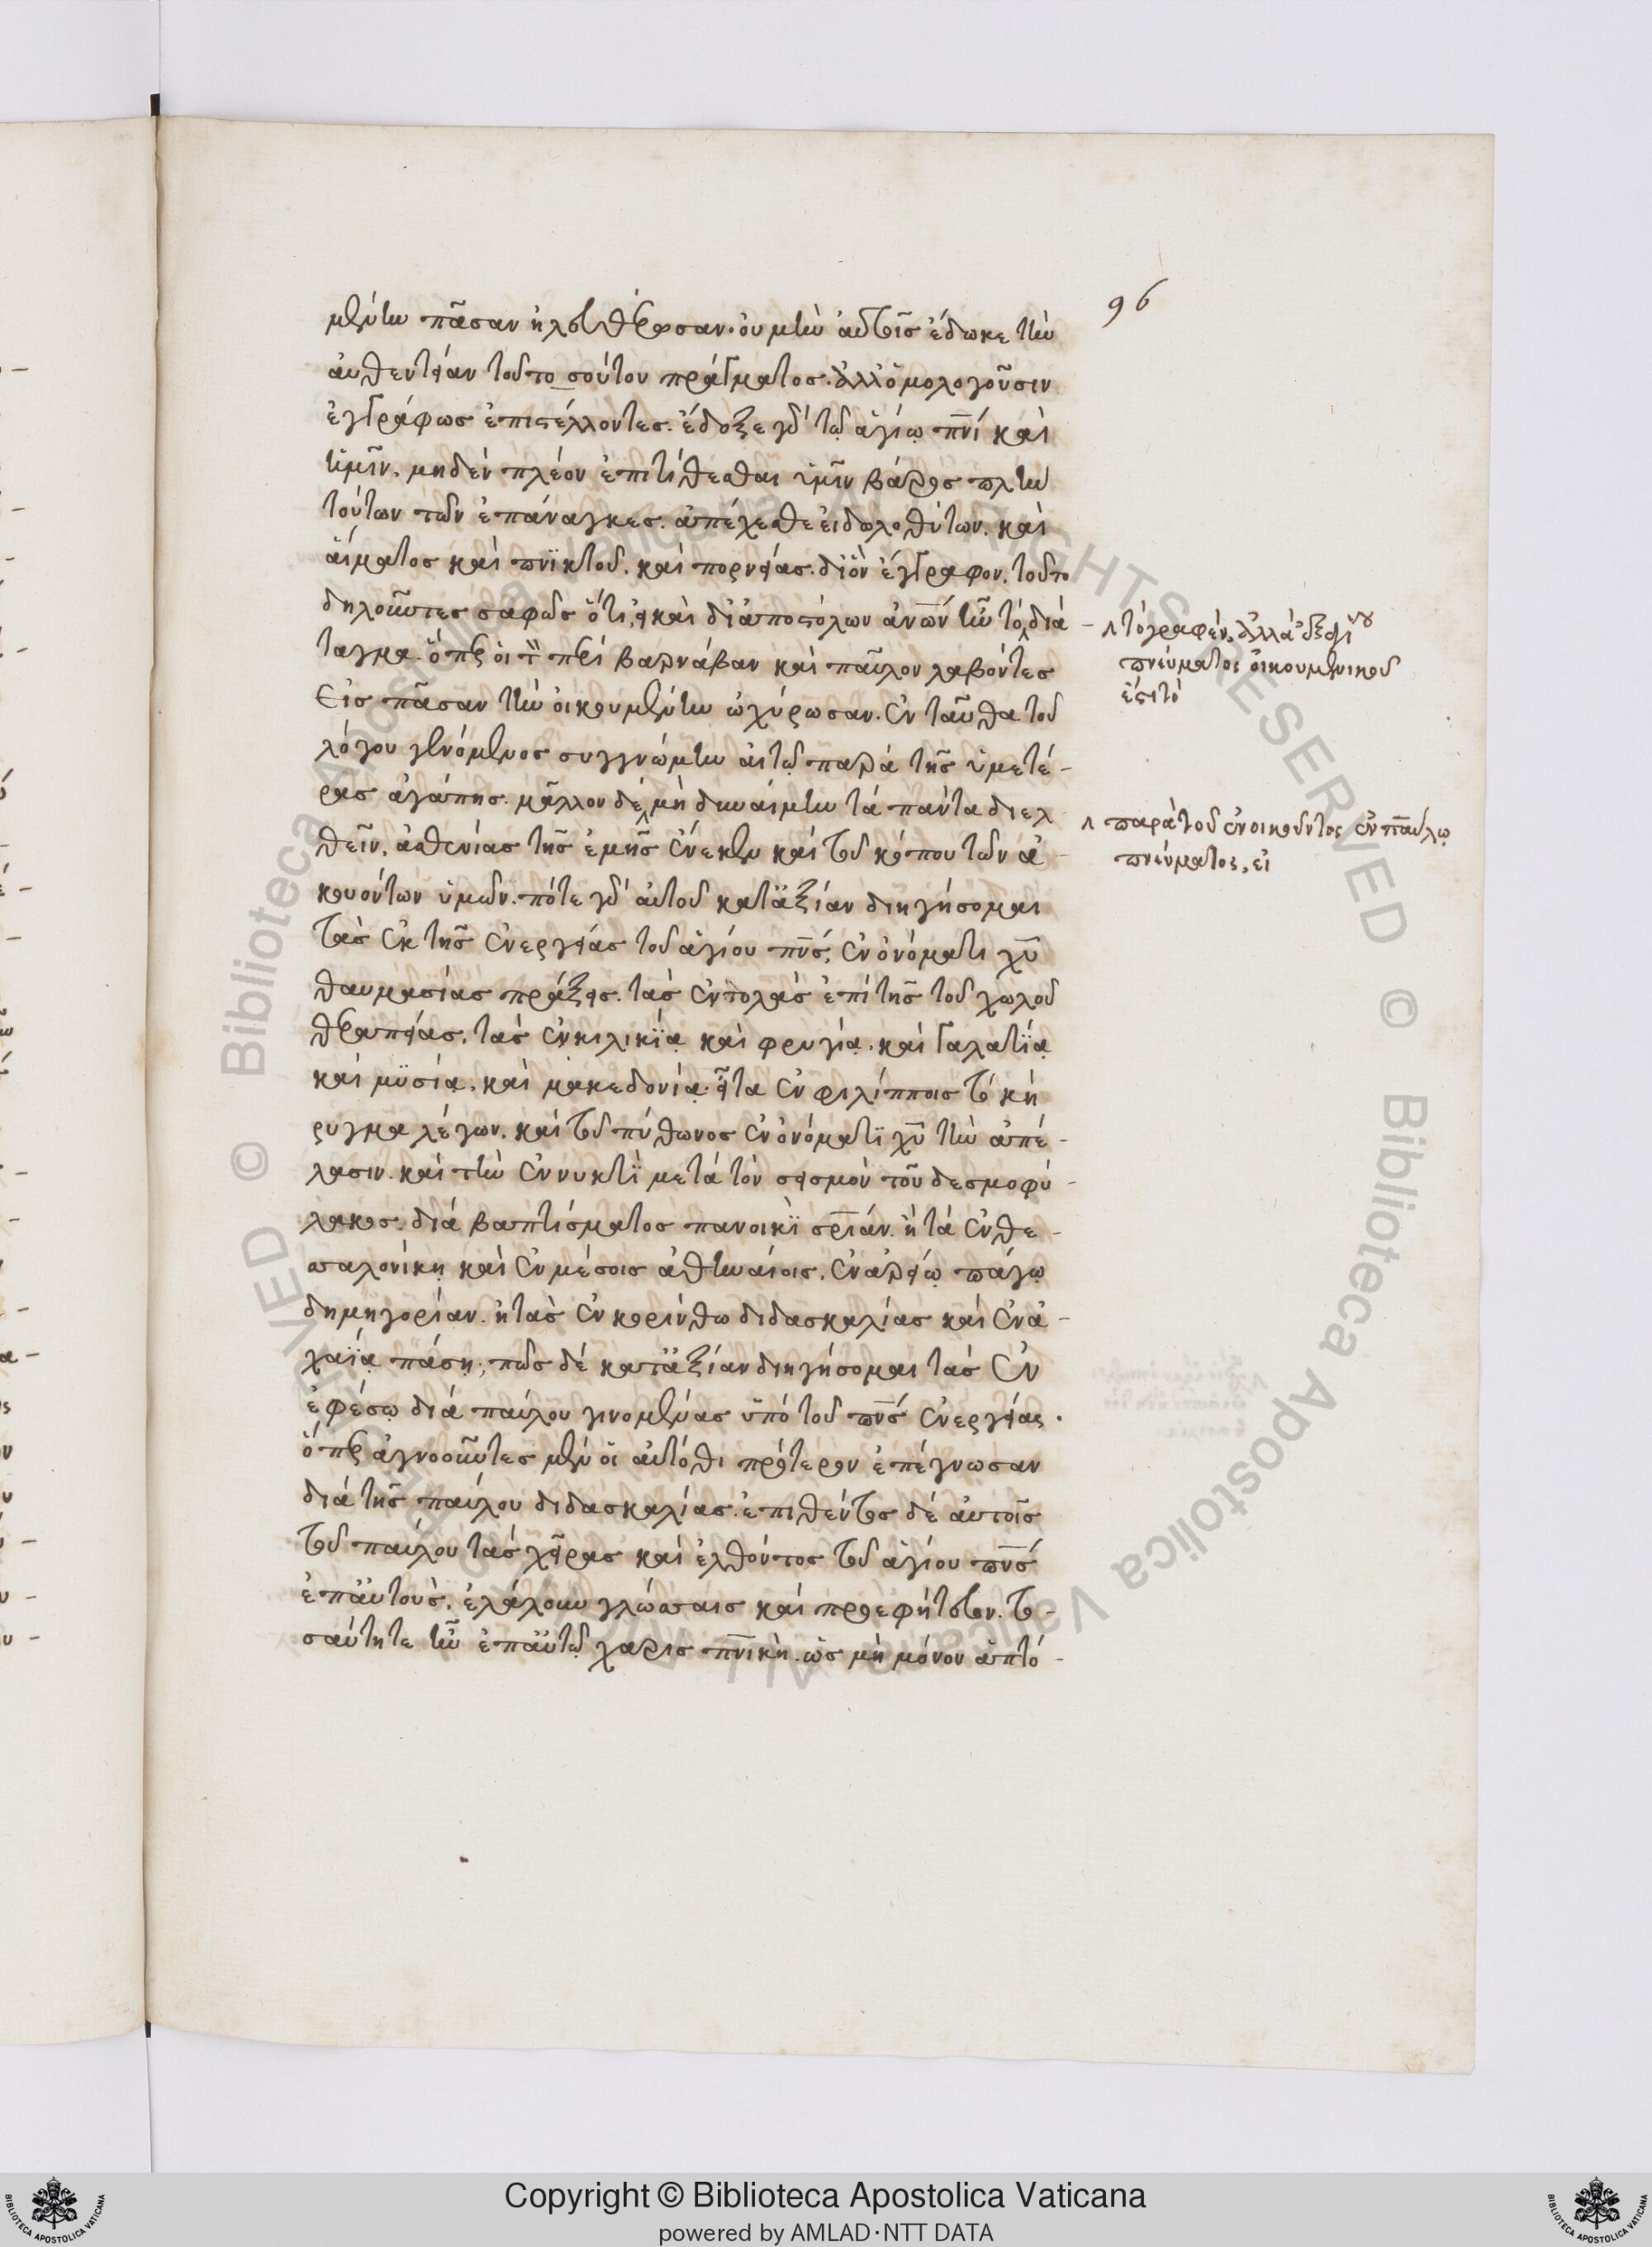 96
μένην πᾶσαν ἠλευθέρωσαν. οὐ μὴν αὐτοῖς ἔδωκε τὴν
αὐθεντείαν τοῦ τοσούτου πράγματος. ἀλλ' ὁμολογοῦσιν
ἐγγράφως ἐπιστέλλοντες. ἔδοξε γὰρ τῷ ἁγίῳ πνι καὶ
ἡμῖν. μηδὲν πλέον ἐπιτίθεσθαι ὑμῖν βάρος πλὴν
τούτων τῶν ἐπάναγκες. ἀπέχεσθε εἰδωλοθύτων. καὶ
αἵματος καὶ πνικτοῦ. καὶ πορνείας. δι' ὃν ἔγραφον. τοῦτο
δηλοῦντες σαφῶς ὅτι, εἰ καὶ δι' ἀποστόλων ἀνων ἦν τὸ διά-
ταγμα. ὅπερ οἱ περὶ βαρνάβαν καὶ παῦλον λαβόντες
εἰς πᾶσαν τὴν οἰκουμένην ὠχύρωσαν. ἐνταῦθα τοῦ
λόγου γενόμενος συγγνώμην αἰτῶ παρὰ τῆς ὑμετέ-
ρας ἀγάπης. μᾶλλον δὲ μὴ δυναίμην τὰ πάντα διελ
θεῖν, ἀσθενείας τῆς ἐμῆς ἕνεκεν καὶ τοῦ κόπου τῶν ἀ-
κουόντων ὑμῶν. πότε γὰρ αὐτοῦ κατ' ἀξίαν διηγήσομαι
τὰς ἐκ τῆς ἐνεργείας τοῦ ἁγίου πνς, ἐν ὀνόματι χυ
θαυμασίας πράξεις. τὰς ἐντολὰς ἐπὶ τῆς τοῦ χωλοῦ
θεραπείας. τὰς ἐν κιλικίᾳ καὶ φρυγίᾳ. καὶ γαλατίᾳ
καὶ μυσίᾳ. καὶ μακεδονίᾳ. εἶτα ἐν φιλίπποις τὸ κή
ρυγμα λέγων. καὶ τοῦ πύθωνος ἐν ὀνόματι χυ τὴν ἀπέ-
λασιν. καὶ τὴν ἐν νυκτὶ μετὰ τὸν σεισμὸν τοῦ δεσμοφύ-
λακος. διὰ βαπτίσματος πανοικὶ σριαν. ἢ τὰ ἐν θε-
σσαλονίκῃ καὶ ἐν μέσοις ἀθηναίοις. ἐν ἀρείῳ πάγῳ
δημηγορίαν. ἢ τὰς ἐν κορίνθω διδασκαλίας καὶ ἐν ἀ-
χαΐᾳ πάσῃ; πῶς δὲ κατ' ἀξίαν διηγήσομαι τὰς ἐν
ἐφέσῳ διὰ παύλου γινομένας ὑπὸ τοῦ πνς ἐνεργείας.
ὅπερ ἀγνοοῦντες μὲν οἱ αὐτόθι πρότερον ἐπέγνωσαν
διὰ τῆς παύλου διδασκαλίας. ἐπιθέντος δὲ αὐτοῖς
τοῦ παύλου τὰς χεῖρας καὶ ἐλθόντος τοῦ ἁγίου πνς
ἐπ' αὐτοὺς. ἐλάλουν γλώσσαις καὶ προεφήτευον. το-
σαύτη τε ἦν ἐπ' αὐτῷ χάρις πνικὴ. ὡς μὴ μόνον ἀπτό-
τὸ γραφέν. ἀλλὰ ἐξ ἁγίου
πνεύματος οἰκουμενικοῦ
ἐστι τὸ
παρὰ τοῦ ἐνοικοῦντος ἐν παύλῳ
πνεύματος, εἰ
Copyright © Biblioteca Apostolica Vaticana
powered by AMLAD·NTT DATA